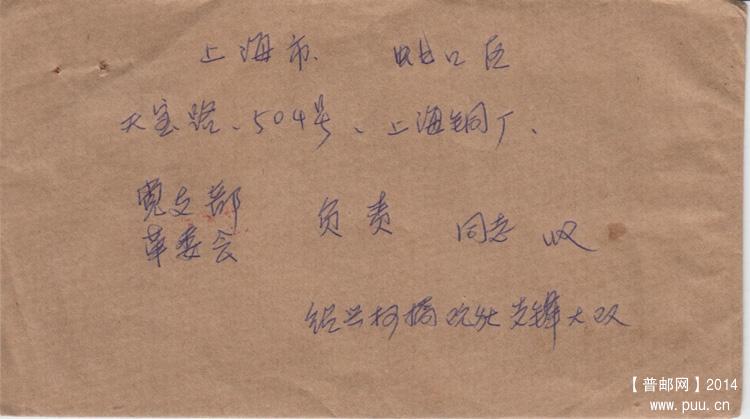 上海市 虹口区
天宝路、504号、上海铜厂、
党支部
革委会 负责 同志 收
绍兴柯桥 大队
【普邮网】2014
www.puu.cn